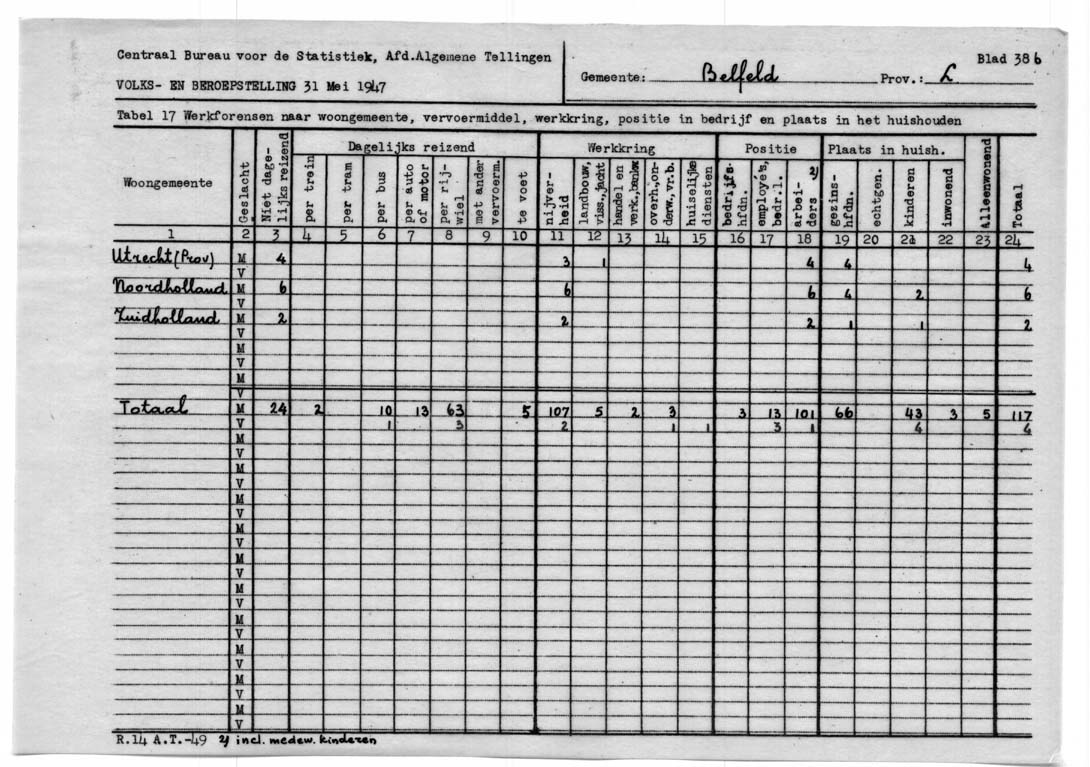 Centraal Bureau voor de Statistiek, Afd.Algemene Tellingen
VOLKS- EN BEROEPSTELLING 31 Mei 1947
Gemeente: Belfeld Prov.: L
Blad 38 b
Tabel 17 Werkforensen naar woongemeente, vervoermiddel, werkkring, positie in bedrijf en plaats in het huishouden
Woongemeente | Geslacht | Niet dage-lijks reizend | Dagelijks reizend | Werkkring | Positie | Plaats in huish. | Alleenwonend | Totaal
per trein | per tram | per bus | per auto of motor | per rij-wiel | met ander vervoerm. | te voet | nijver-heid | landbouw, viss.,jacht | handel en verk.,bankw | overh.,on-derw.,vr.b. | huiselijke diensten | bedrijfs-hfdn. | employé's, bedr.l. | arbei-ders 2) | gezins-hfdn. | echtgen. | kinderen | inwonend
1 2 3 4 5 6 7 8 9 10 11 12 13 14 15 16 17 18 19 20 21 22 23 24
Utrecht (Prov) M 4 3 1 4 4 4
V
Noordholland M 6 6 6 4 2 6
V
Zuidholland M 2 2 2 1 1 2
V
M
V
M
V
Totaal M 24 2 10 13 63 5 107 5 2 3 3 13 101 66 43 3 5 117
V 1 3 2 1 1 3 1 4 4
M
V
M
V
M
V
M
V
M
V
M
V
M
V
M
V
M
V
M
V
R.14 A.T.-49 2) incl. medew. kinderen